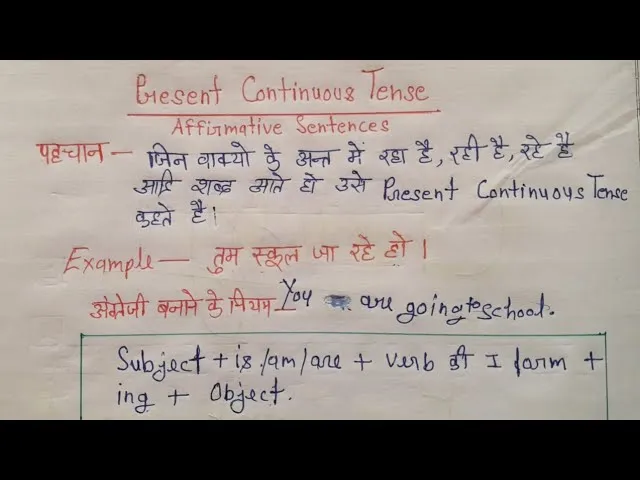 Present Continuous Tense
Affirmative Sentences
पहचान — जिन वाक्यो के अन्त में रहा है, रही है, रहे है
आदि शब्द आते हो उसे Present Continuous Tense
कहते है।
Example — तुम स्कूल जा रहे हो।
अंग्रेजी बनाने के नियम — You are going to school.
Subject + is/am/are + verb की I form +
ing + Object.